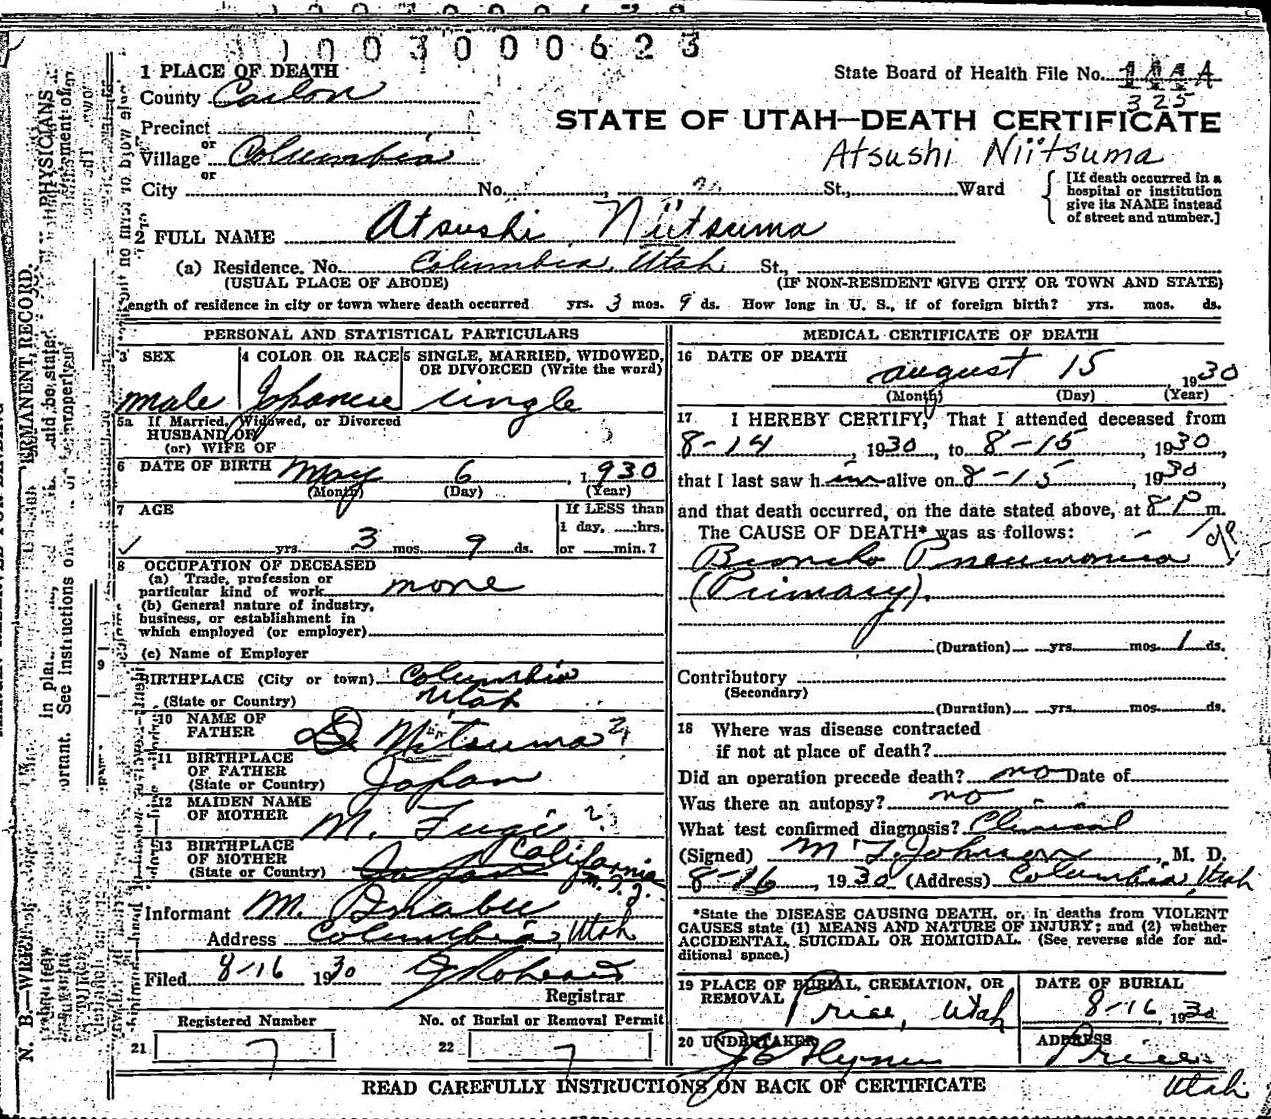 1003000623
1 PLACE OF DEATH
State Board of Health File No. 325
County Carbon
STATE OF UTAH—DEATH CERTIFICATE
Precinct
or
Village Columbia
Atsushi Niitsuma
or
City No. St., Ward
[If death occurred in a hospital or institution give its NAME instead of street and number.]
2 FULL NAME Atsushi Niitsuma
(a) Residence. No. Columbia, Utah St.,
(USUAL PLACE OF ABODE) (IF NON-RESIDENT GIVE CITY OR TOWN AND STATE)
Length of residence in city or town where death occurred yrs. 3 mos. 9 ds. How long in U. S., if of foreign birth? yrs. mos. ds.
PERSONAL AND STATISTICAL PARTICULARS
3 SEX
male
4 COLOR OR RACE
Japanese
5 SINGLE, MARRIED, WIDOWED, OR DIVORCED (Write the word)
single
5a If Married, Widowed, or Divorced
HUSBAND OF
(or) WIFE OF
6 DATE OF BIRTH May 6, 1930
(Month) (Day) (Year)
7 AGE
If LESS than
1 day, ....hrs.
yrs. 3 mos. 9 ds. or ......min.?
8 OCCUPATION OF DECEASED
(a) Trade, profession or
particular kind of work none
(b) General nature of industry,
business, or establishment in
which employed (or employer)
(c) Name of Employer
9 BIRTHPLACE (City or town) Columbia
(State or Country) Utah
10 NAME OF
FATHER Niitsuma
11 BIRTHPLACE
OF FATHER
(State or Country) Japan
12 MAIDEN NAME
OF MOTHER M. Fugie ?
13 BIRTHPLACE
OF MOTHER
(State or Country) Japan California
Informant M.
Address Columbia, Utah
Filed 8-16 1930
Registrar
Registered Number
No. of Burial or Removal Permit
21 7
22 7
MEDICAL CERTIFICATE OF DEATH
16 DATE OF DEATH
August 15 1930
(Month) (Day) (Year)
17 I HEREBY CERTIFY, That I attended deceased from
8-14, 1930, to 8-15, 1930,
that I last saw him alive on 8-15, 1930,
and that death occurred, on the date stated above, at 8 P m.
The CAUSE OF DEATH* was as follows:
Broncho Pneumonia
(Primary).
(Duration) yrs. mos. 1 ds.
Contributory
(Secondary)
(Duration) yrs. mos. ds.
18 Where was disease contracted
if not at place of death?
Did an operation precede death? no Date of
Was there an autopsy? no
What test confirmed diagnosis? Clinical
(Signed) M T Johnson, M. D.
8-16, 1930 (Address) Columbia, Utah
*State the DISEASE CAUSING DEATH, or, in deaths from VIOLENT
CAUSES state (1) MEANS AND NATURE OF INJURY; and (2) whether
ACCIDENTAL, SUICIDAL OR HOMICIDAL. (See reverse side for additional space.)
19 PLACE OF BURIAL, CREMATION, OR
REMOVAL Price, Utah
DATE OF BURIAL
8-16, 1930
20 UNDERTAKER J E Flynn
ADDRESS
Price
Utah
READ CAREFULLY INSTRUCTIONS ON BACK OF CERTIFICATE